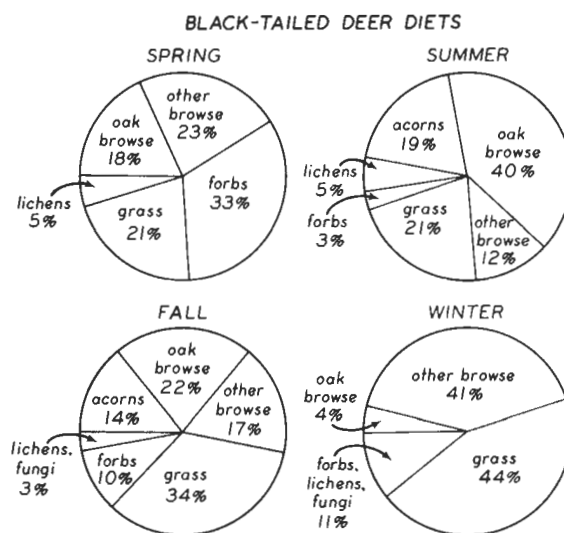 BLACK-TAILED DEER DIETS
SPRING
other
browse
23%
oak
browse
18%
forbs
33%
lichens
5%
grass
21%
SUMMER
acorns
19%
oak
browse
40%
lichens
5%
forbs
3%
grass
21%
other
browse
12%
FALL
oak
browse
22%
acorns
14%
other
browse
17%
lichens,
fungi
3%
forbs
10%
grass
34%
WINTER
other browse
41%
oak
browse
4%
forbs,
lichens,
fungi
11%
grass
44%